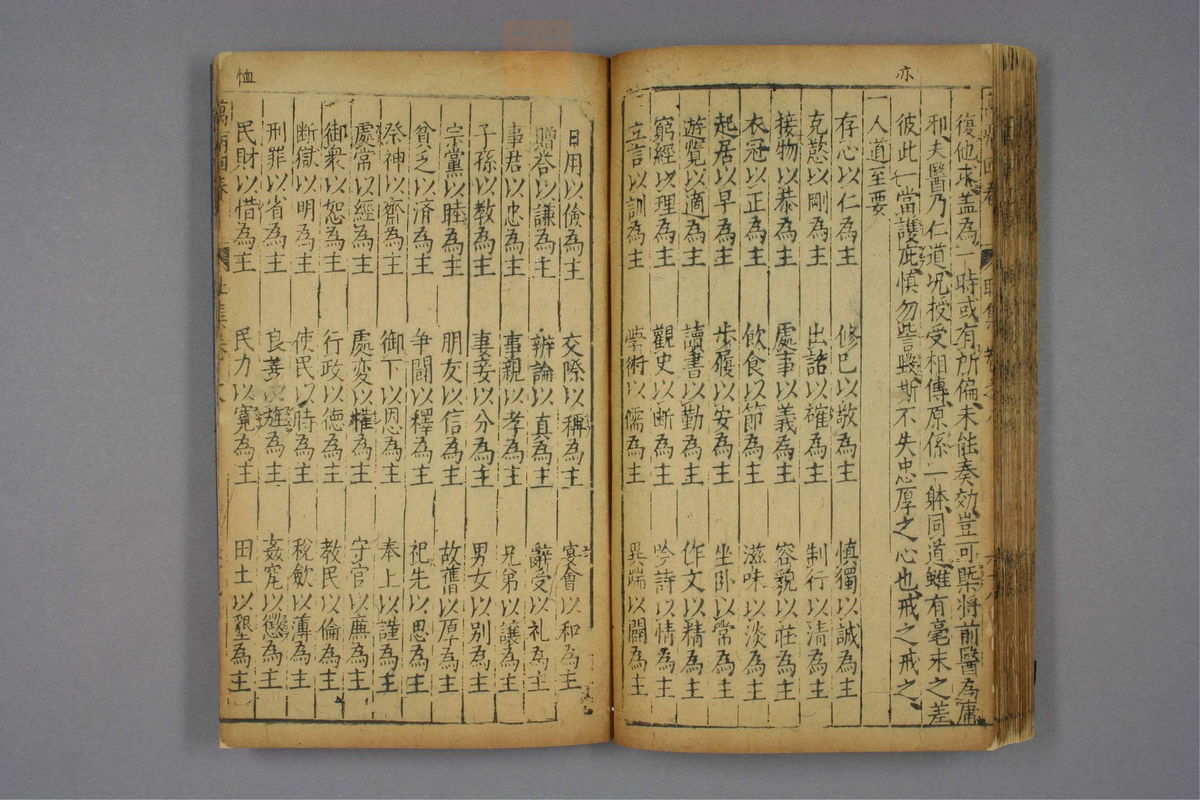 亦
復他求盖為一時或有所偏未能奏効豈可槩将前醫為庸
邪夫醫乃仁道况授受相傳原係一躰同道雖有毫末之差
彼此一當護庇慎勿訾毀斯不失忠厚之心也戒之戒之
一人道至要
存心以仁為主 修己以敬為主 慎獨以誠為主
克慾以剛為主 出話以確為主 制行以清為主
接物以恭為主 處事以義為主 容貌以莊為主
衣冠以正為主 飲食以節為主 滋味以淡為主
起居以早為主 歩履以安為主 坐卧以常為主
遊覽以適為主 讀書以勤為主 作文以精為主
窮經以理為主 觀史以断為主 吟詩以情為主
立言以訓為主 學術以儒為主 異端以闢為主
日用以儉為主 交際以稱為主 宴會以和為主
贈荅以謙為主 辨論以真為主 辭受以礼為主
事君以忠為主 事親以孝為主 兄弟以讓為主
子孫以教為主 妻妾以分為主 男女以别為主
宗黨以睦為主 朋友以信為主 故舊以厚為主
貧乏以済為主 争闘以釋為主 祀先以思為主
祭神以齋為主 御下以恩為主 奉上以謹為主
處常以經為主 處変以權為主 守官以廉為主
御衆以恕為主 行政以德為主 教民以倫為主
断獄以明為主 使民以時為主 稅歛以薄為主
刑罪以省為主 良善以旌為主 姦宄以懲為主
民財以惜為主 民力以寬為主 田土以墾為主
恤